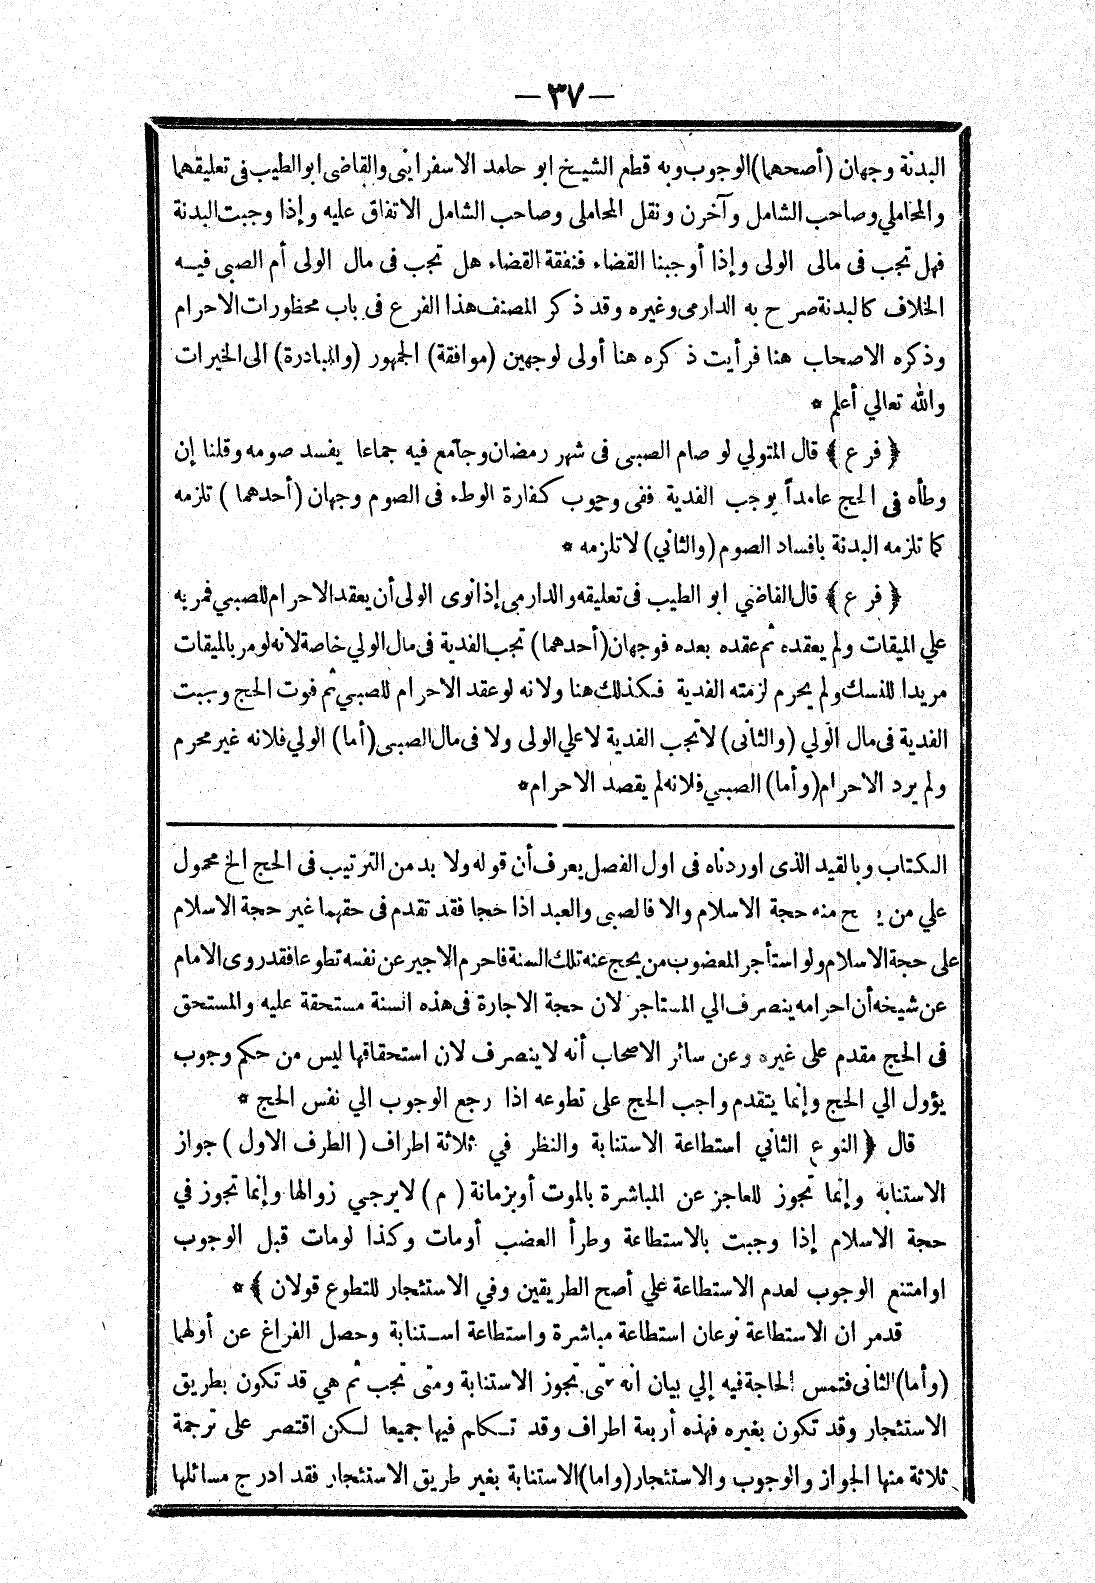 — ٣٧ —
البدنة وجهان (أصحهما) الوجوب وبه قطع الشيخ ابو حامد الاسفراينى والقاضى ابو الطيب فى تعليقهما
والمحاملي وصاحب الشامل وآخرن ونقل المحاملى وصاحب الشامل الاتفاق عليه وإذا وجبت البدنة
فهل تجب فى مالى الولى وإذا أوجبنا القضاء فنفقة القضاء هل تجب فى مال الولى أم الصبى فيه
الخلاف كالبدنة صرح به الدارمى وغيره وقد ذكر المصنف هذا الفرع فى باب محظورات الاحرام
وذكره الاصحاب هنا فرأيت ذكره هنا أولى لوجهين (موافقة) الجمهور (والمبادرة) الى الخيرات
والله تعالي أعلم *
﴿ فرع ﴾ قال المتولي لو صام الصبى فى شهر رمضان وجامع فيه جماعا يفسد صومه وقلنا إن
وطأه فى الحج عامداً يوجب الفدية ففى وجوب كفارة الوطء فى الصوم وجهان (أحدهما) تلزمه
كما تلزمه البدنة بافساد الصوم (والثاني) لا تلزمه *
﴿ فرع ﴾ قال القاضي ابو الطيب فى تعليقه والدارمى إذا نوى الولى أن يعقد الاحرام للصبي فمر به
علي الميقات ولم يعقده ثم عقده بعده فوجهان (أحدهما) تجب الفدية فى مال الولي خاصة لانه لو مر بالميقات
مريدا للنسك ولم يحرم لزمته الفدية فكذلك هنا ولانه لو عقد الاحرام للصبي ثم فوت الحج وجبت
الفدية فى مال الولي (والثانى) لا تجب الفدية لا علي الولى ولا فى مال الصبى (أما) الولي فلانه غير محرم
ولم يرد الاحرام (وأما) الصبي فلانه لم يقصد الاحرام *
الكتاب وبالقيد الذى اوردناه فى اول الفصل يعرف أن قوله ولا بد من الترتيب فى الحج الخ محمول
علي من يصح منه حجة الاسلام والا فالصبى والعبد اذا حجا فقد تقدم فى حقهما غير حجة الاسلام
على حجة الاسلام ولو استأجر المعضوب من يحج عنه تلك السنة فاحرم الاجير عن نفسه تطوعا فقد روى الامام
عن شيخه أن احرامه ينصرف الي المستاجر لان حجة الاجارة فى هذه السنة مستحقة عليه والمستحق
فى الحج مقدم على غيره وعن سائر الاصحاب أنه لا ينصرف لان استحقاقها ليس من حكم وجوب
يؤول الي الحج وإنما يتقدم واجب الحج على تطوعه اذا رجع الوجوب الي نفس الحج *
قال ﴿ النوع الثاني استطاعة الاستنابة والنظر في ثلاثة اطراف (الطرف الاول) جواز
الاستنابة وإنما تجوز للعاجز عن المباشرة بالموت أو بزمانة (م) لا يرجي زوالها وإنما تجوز في
حجة الاسلام إذا وجبت بالاستطاعة وطرأ العضب أو مات وكذا لو مات قبل الوجوب
او امتنع الوجوب لعدم الاستطاعة علي أصح الطريقين وفي الاستئجار للتطوع قولان ﴾ *
قد مر ان الاستطاعة نوعان استطاعة مباشرة واستطاعة استنابة وحصل الفراغ عن أولهما
(وأما) الثانى فتمس الحاجة فيه إلي بيان انه متى تجوز الاستنابة ومتى تجب ثم هي قد تكون بطريق
الاستئجار وقد تكون بغيره فهذه أربعة اطراف وقد تكلم فيها جميعا لكن اقتصر على ترجمة
ثلاثة منها الجواز والوجوب والاستئجار (واما) الاستنابة بغير طريق الاستئجار فقد ادرج مسائلها